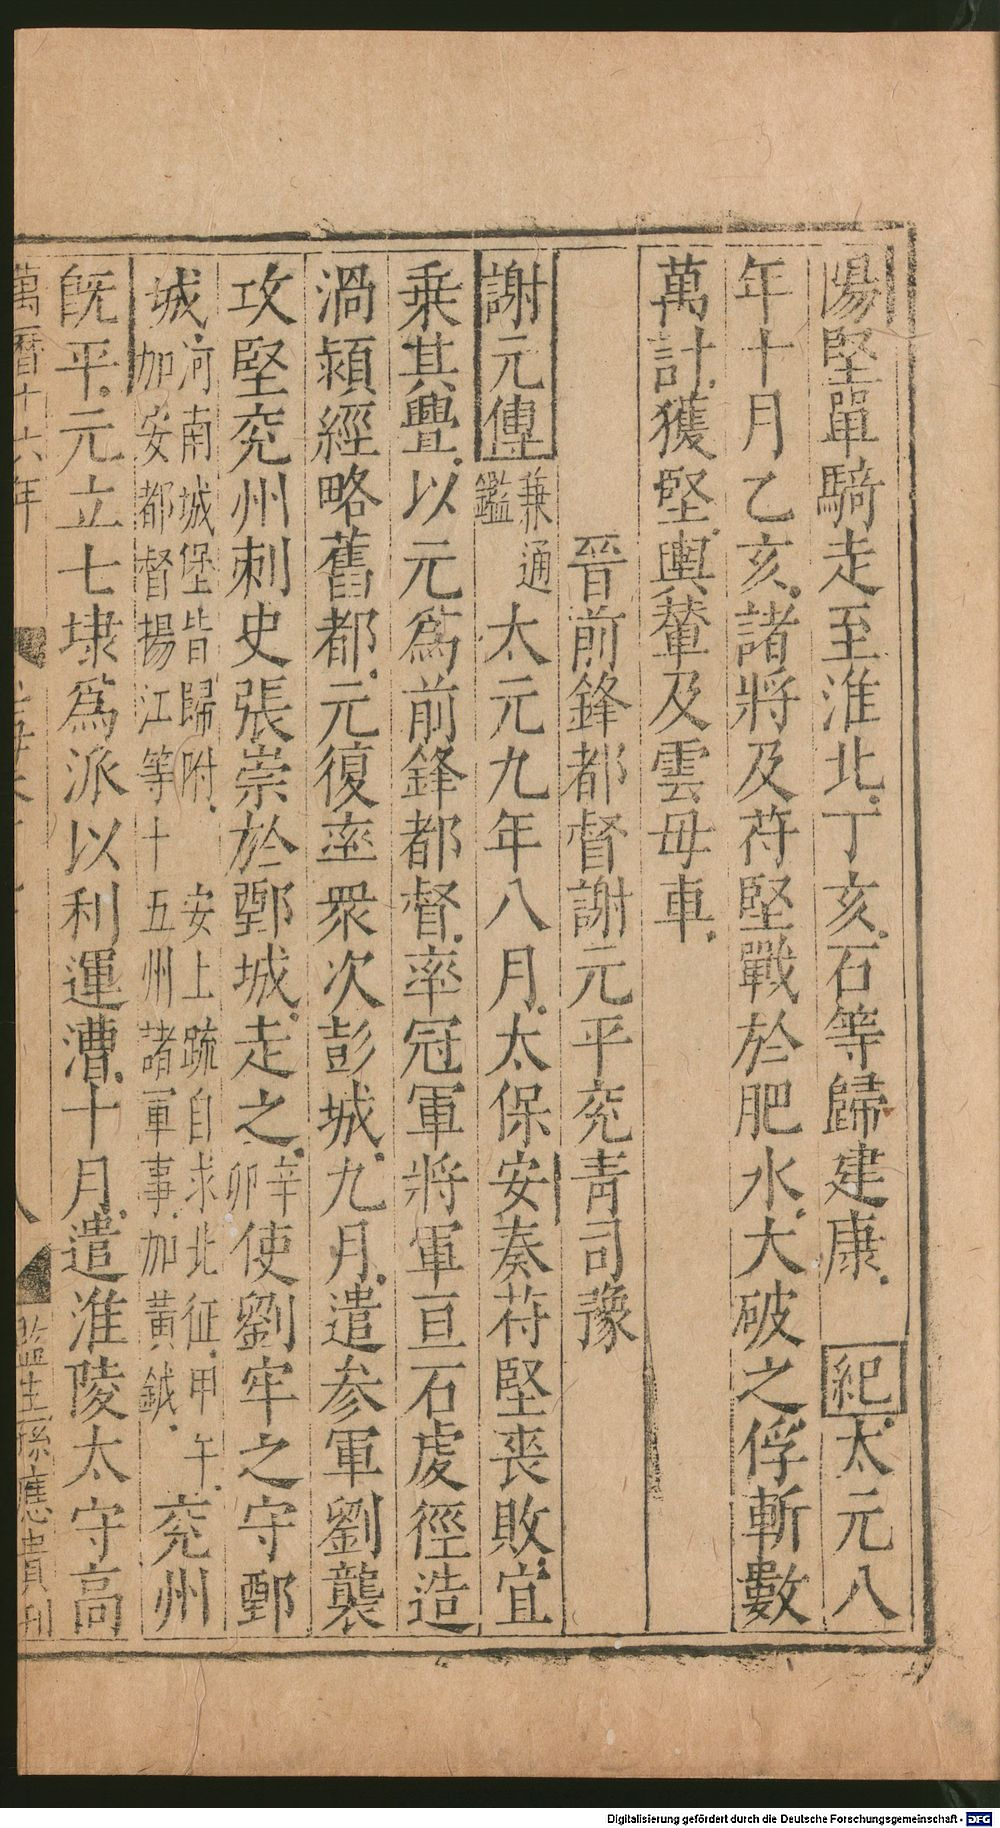 陽堅單騎走至淮北丁亥石等歸建康 紀太元八
年十月乙亥諸將及苻堅戰於肥水大破之俘斬數
萬計獲堅輿輦及雲母車
晉前鋒都督謝元平兖青司豫
謝元傳兼通鑑太元九年八月太保安奏苻堅喪敗宜
乗其舋以元為前鋒都督率冠軍將軍亘石虔徑造
渦潁經略舊都元復率衆次彭城九月遣参軍劉襲
攻堅兖州刺史張崇於鄄城走之辛卯使劉牢之守鄄
城河南城堡皆歸附安上疏自求北征甲午加安都督揚江等十五州諸軍事加黃鉞兖州
旣平元立七埭為派以利運漕十月遣淮陵太守高
萬曆十六年
監生孫應貴刊
Digitalisierung gefördert durch die Deutsche Forschungsgemeinschaft - DFG